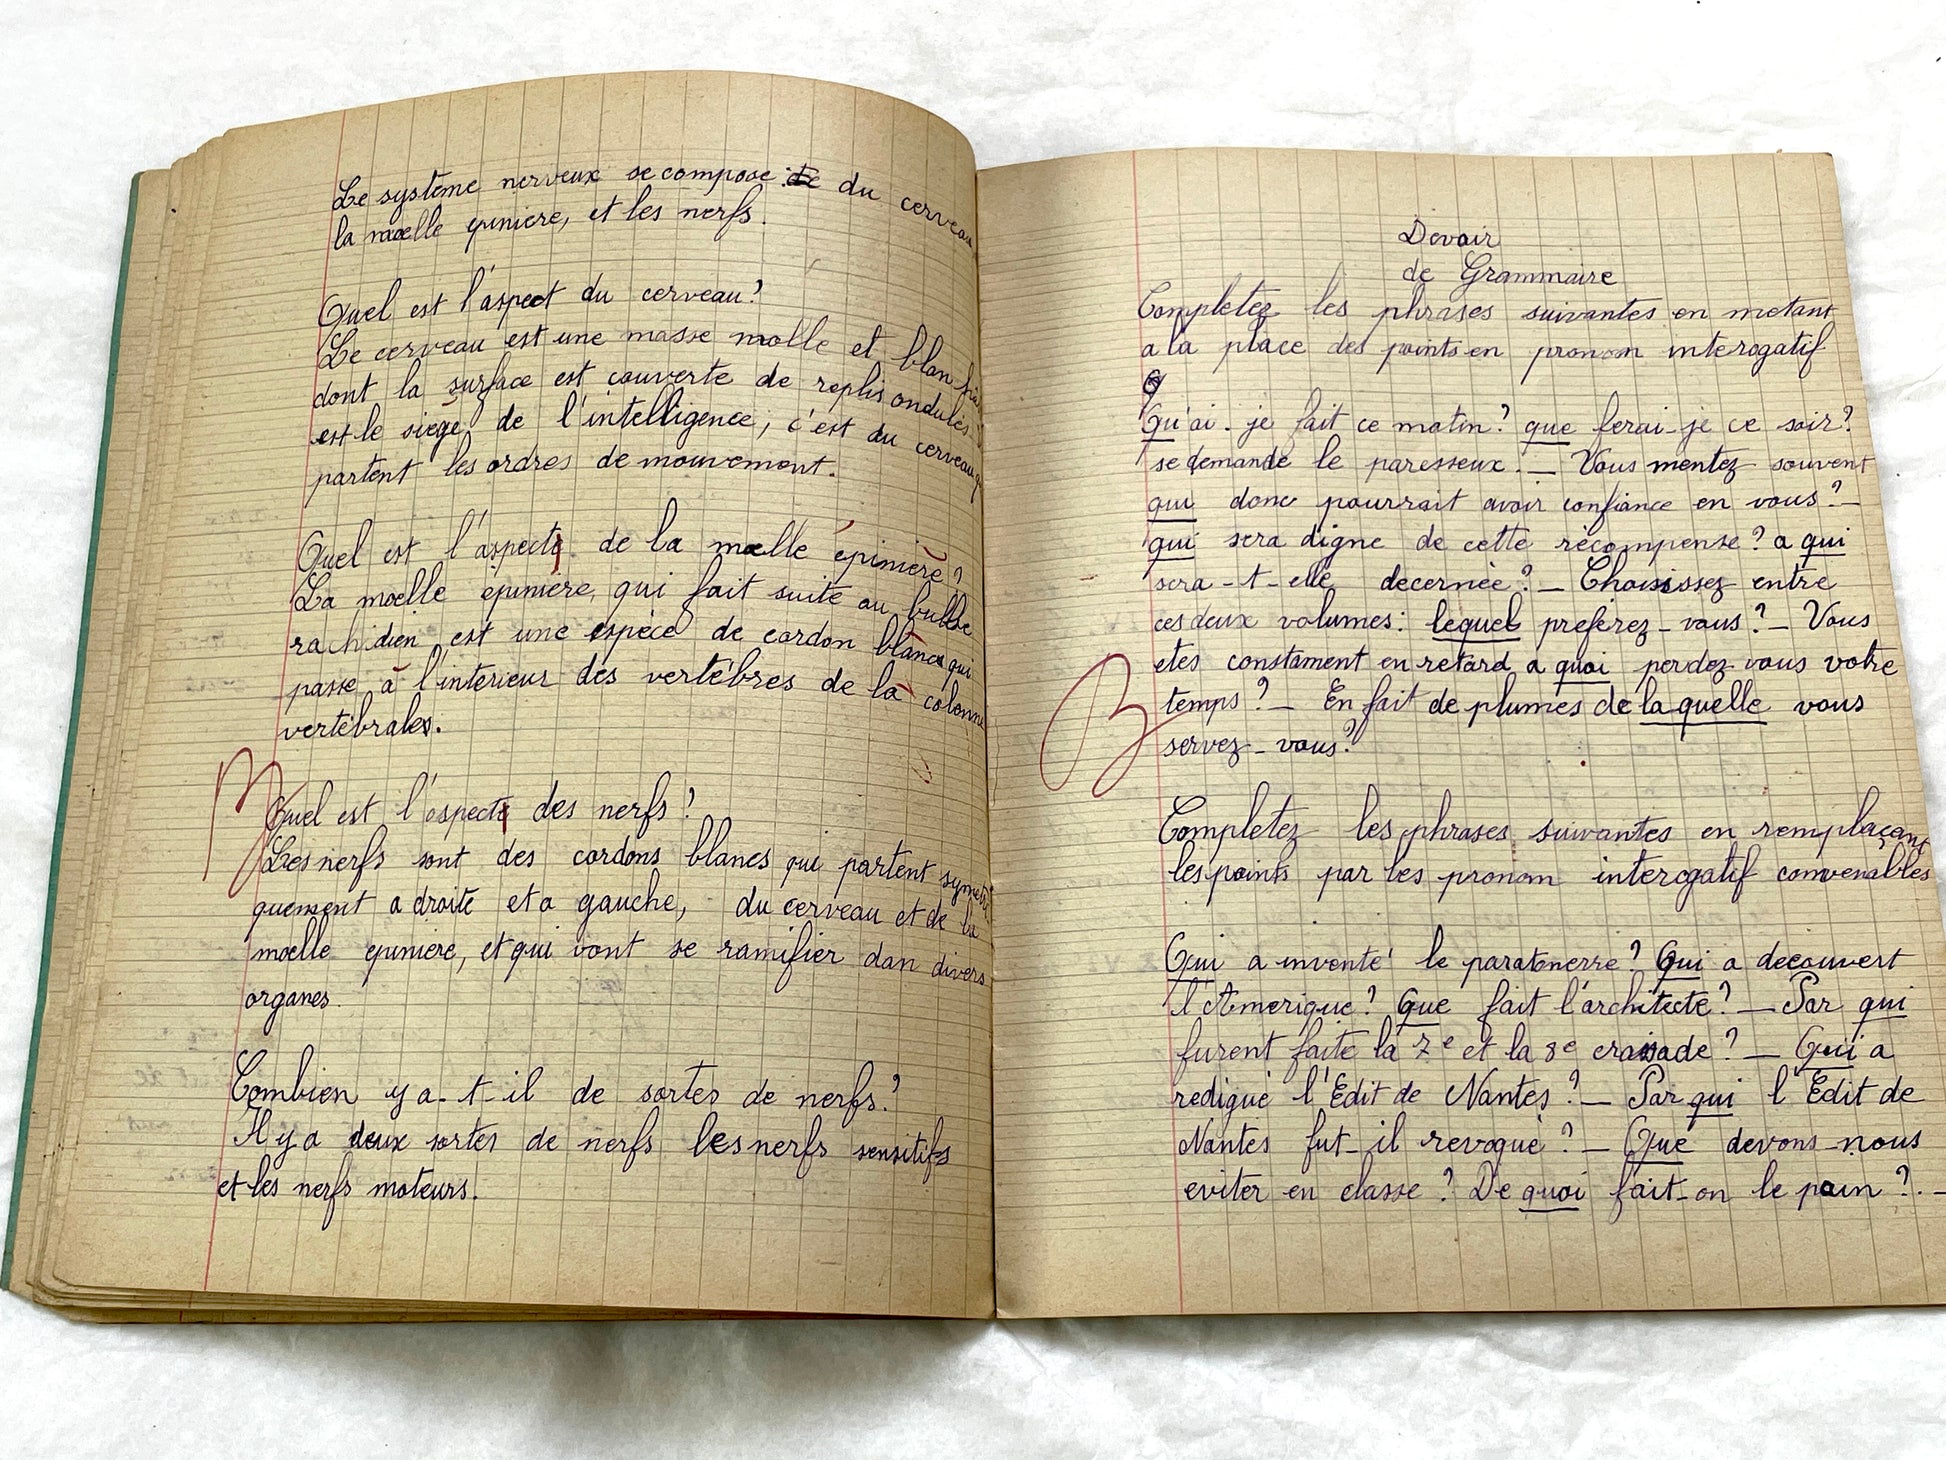 Le système nerveux se compose: de du cerveau
la moelle epiniere, et les nerfs.
Quel est l'aspect du cerveau?
Le cerveau est une masse molle et blan
dont la surface est couverte de replis ondulés.
est le siège de l'intelligence, c'est du cerveau
partent les ordres de mouvement.
Quel est l'aspect de la moelle épinière?
La moelle épiniere, qui fait suite au bulbe
rachidien est une espèce de cordon blanc qui
passe à l'interieur des vertèbres de la colonne
vertébrales.
Quel est l'aspect des nerfs?
Les nerfs sont des cordons blancs qui partent symetri
quement a droite et a gauche, du cerveau et de la
moelle epiniere, et qui vont se ramifier dan divers
organes.
Combien y a-t-il de sortes de nerfs?
Il y a deux sortes de nerfs les nerfs sensitifs
et les nerfs moteurs.
Devoir
de Grammaire
Completez les phrases suivantes en metant
a la place des points en pronom interogatif
Qu'ai-je fait ce matin? que ferai-je ce soir?
se demande le paresseux. — Vous mentez souvent
qui donc pourrait avoir confiance en vous? —
qui sera digne de cette récompense? a qui
sera-t-elle decernée? — Choisissez entre
ces deux volumes: lequel preferez-vous? — Vous
etes constament en retard a quoi perdez vous votre
temps? — En fait de plumes de laquelle vous
servez-vous?
Completez les phrases suivantes en remplaçant
les points par les pronom interogatif convenables
Qui a inventé le paratonerre? Qui a decouvert
l'Amerique? Que fait l'architecte? — Par qui
furent faite la 7e et la 8e croisade? — Qui a
redigué l'Edit de Nantes? — Par qui l'Edit de
Nantes fut-il revoqué? — Que devons-nous
eviter en classe? De quoi fait-on le pain?. —